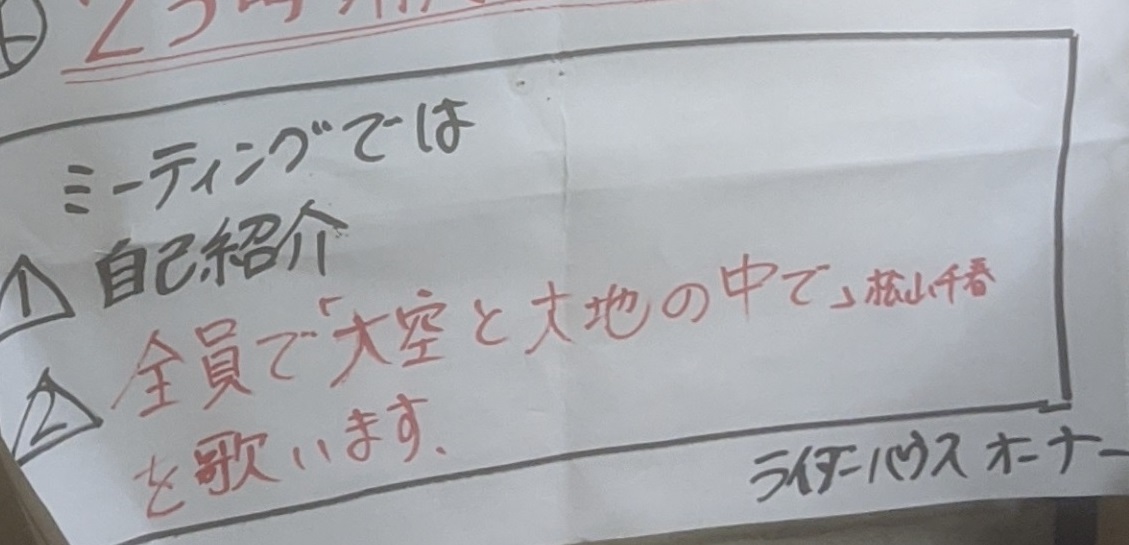 ミーティングでは
1 自己紹介
2 全員で「大空と大地の中で」松山千春
を歌います、
ライダーハウスオーナー